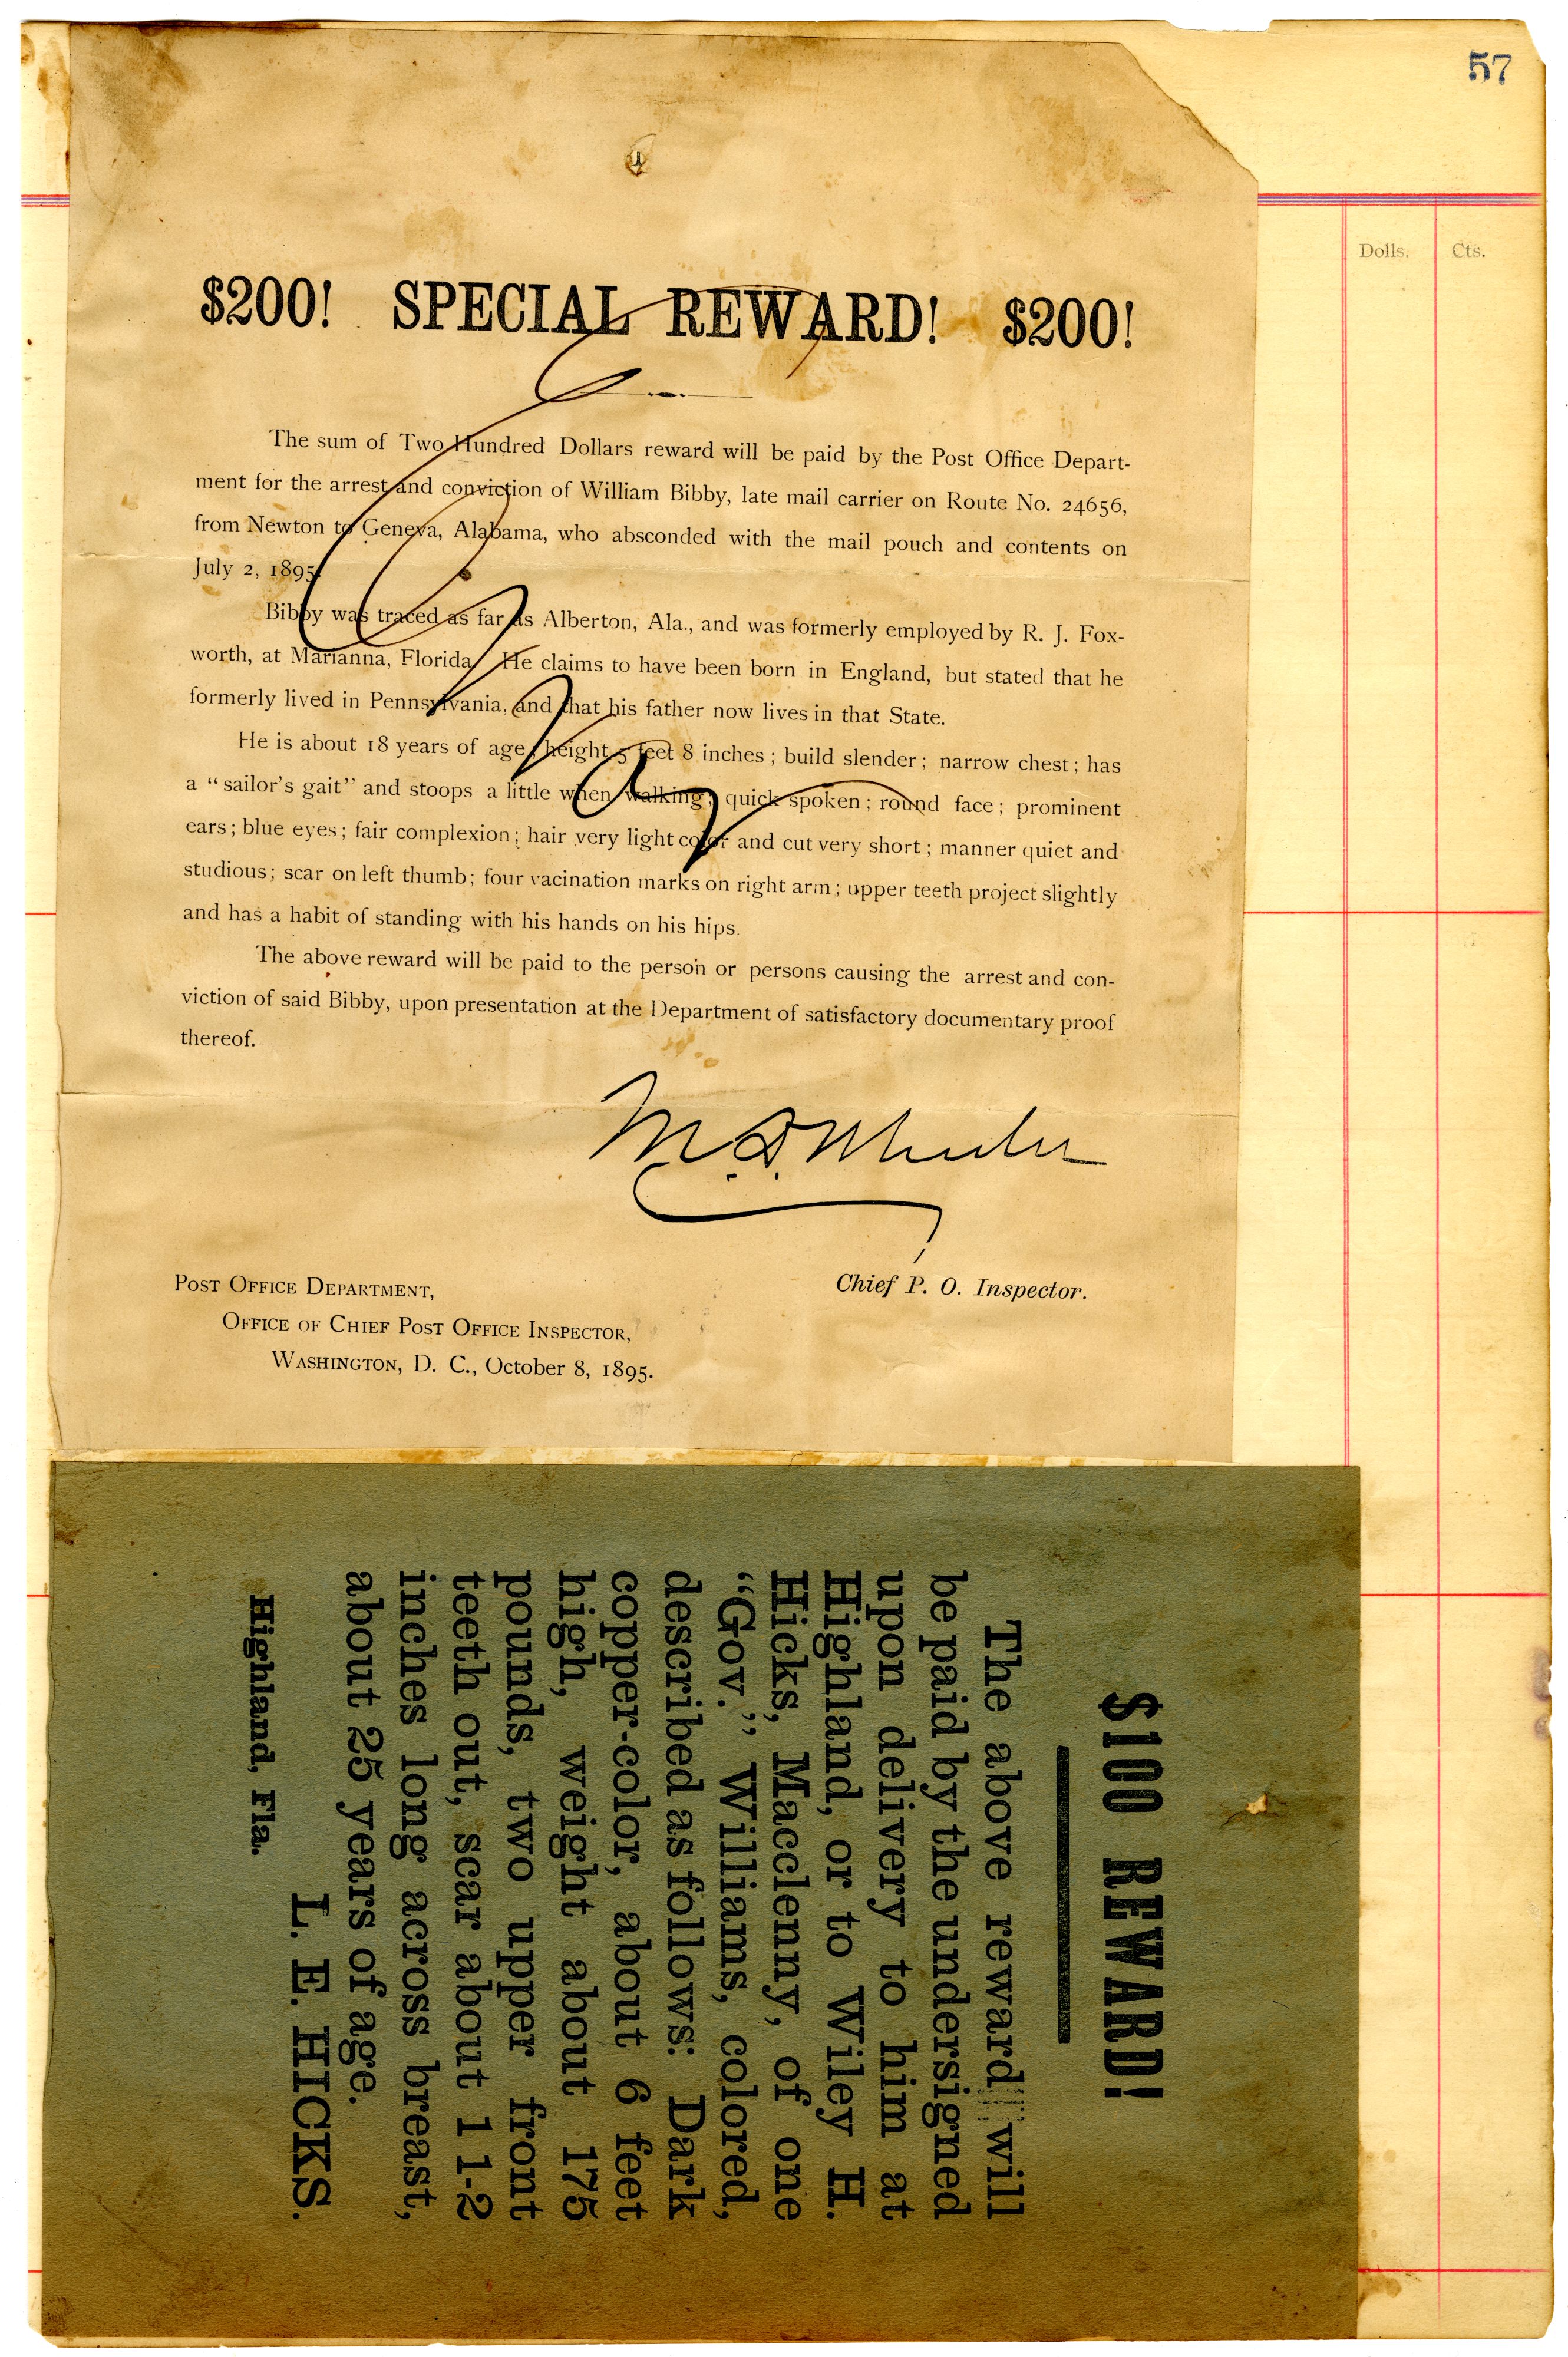 57
Dolls. Cts.
$200! SPECIAL REWARD! $200!
The sum of Two Hundred Dollars reward will be paid by the Post Office Depart-
ment for the arrest and conviction of William Bibby, late mail carrier on Route No. 24656,
from Newton to Geneva, Alabama, who absconded with the mail pouch and contents on
July 2, 1895.
Bibby was traced as far as Alberton, Ala., and was formerly employed by R. J. Fox-
worth, at Marianna, Florida. He claims to have been born in England, but stated that he
formerly lived in Pennsylvania, and that his father now lives in that State.
He is about 18 years of age; height 5 feet 8 inches; build slender; narrow chest; has
a "sailor's gait" and stoops a little when walking; quick spoken; round face; prominent
ears; blue eyes; fair complexion; hair very light color and cut very short; manner quiet and
studious; scar on left thumb; four vacination marks on right arm; upper teeth project slightly
and has a habit of standing with his hands on his hips.
The above reward will be paid to the person or persons causing the arrest and con-
viction of said Bibby, upon presentation at the Department of satisfactory documentary proof
thereof.
M. D. Wheeler
Chief P. O. Inspector.
POST OFFICE DEPARTMENT,
OFFICE OF CHIEF POST OFFICE INSPECTOR,
WASHINGTON, D. C., October 8, 1895.
$100 REWARD!
The above reward will
be paid by the undersigned
upon delivery to him at
Highland, or to Wiley H.
Hicks, Macclenny, of one
"Gov." Williams, colored,
described as follows: Dark
copper-color, about 6 feet
high, weight about 175
pounds, two upper front
teeth out, scar about 1 1-2
inches long across breast,
about 25 years of age.
L. E. HICKS.
Highland, Fla.